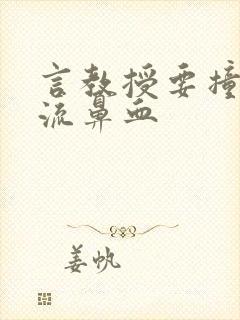 言教授要撞
流鼻血
姜帆